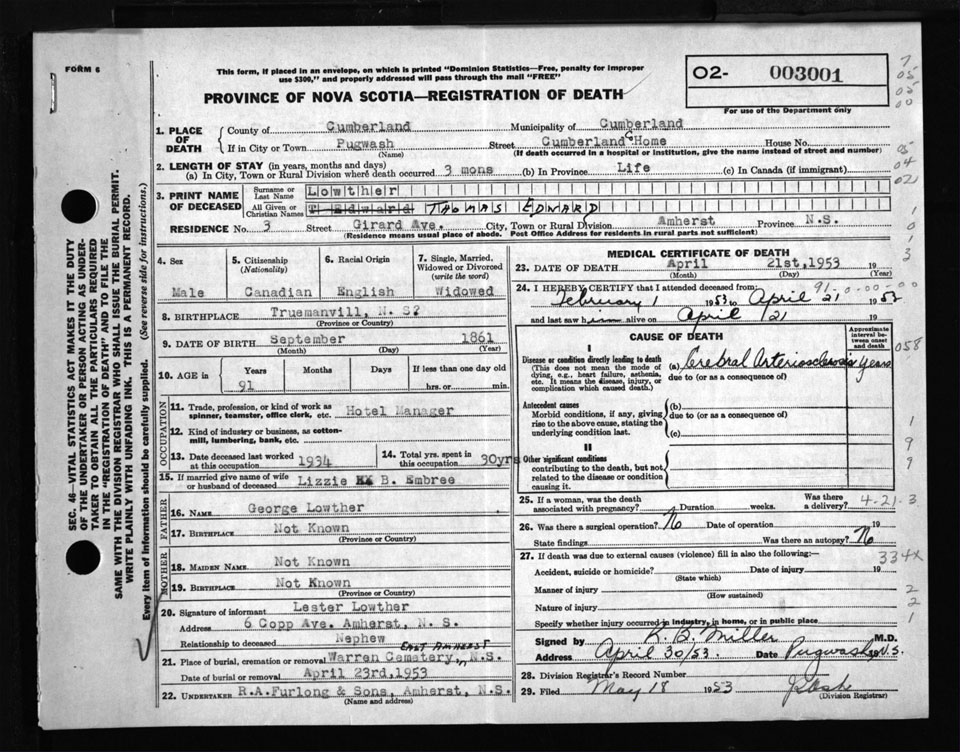 FORM 6
This form, if placed in an envelope, on which is printed "Dominion Statistics—Free, penalty for improper
use $300," and properly addressed will pass through the mail "FREE"
PROVINCE OF NOVA SCOTIA—REGISTRATION OF DEATH
O2- 003001
For use of the Department only
SEC. 46—VITAL STATISTICS ACT MAKES IT THE DUTY
OF THE UNDERTAKER OR PERSON ACTING AS UNDER-
TAKER TO OBTAIN ALL THE PARTICULARS REQUIRED
IN THE "REGISTRATION OF DEATH" AND TO FILE THE
SAME WITH THE DIVISION REGISTRAR WHO SHALL ISSUE THE BURIAL PERMIT.
WRITE PLAINLY WITH UNFADING INK. THIS IS A PERMANENT RECORD.
Every item of Information should be carefully supplied. (See reverse side for instructions.)
1. PLACE OF DEATH
County of Cumberland Municipality of Cumberland
If in City or Town Pugwash Street Cumberland Home House No.
(Name) (If death occurred in a hospital or institution, give the name instead of street and number)
2. LENGTH OF STAY (in years, months and days)
(a) In City, Town or Rural Division where death occurred 3 mons (b) In Province Life (c) In Canada (if immigrant)
3. PRINT NAME OF DECEASED
Surname or Last Name Lowther
All Given or Christian Names T Edward THOMAS EDWARD
RESIDENCE No. 3 Street Girard Ave. City, Town or Rural Division Amherst Province N.S.
(Residence means usual place of abode. Post Office Address for residents in rural parts not sufficient)
4. Sex
Male
5. Citizenship
(Nationality)
Canadian
6. Racial Origin
English
7. Single, Married,
Widowed or Divorced
(write the word)
Widowed
8. BIRTHPLACE Truemanvill, N. S?
(Province or Country)
9. DATE OF BIRTH September 1861
(Month) (Day) (Year)
10. AGE in Years Months Days If less than one day old
91 hrs. or min.
OCCUPATION
11. Trade, profession, or kind of work as
spinner, teamster, office clerk, etc. Hotel Manager
12. Kind of industry or business, as cotton-
mill, lumbering, bank, etc.
13. Date deceased last worked
at this occupation 1934
14. Total yrs. spent
in this occupation 30yrs
15. If married give name of wife
or husband of deceased Lizzie B. Embree
FATHER
16. NAME George Lowther
17. BIRTHPLACE Not Known
(Province or Country)
MOTHER
18. MAIDEN NAME Not Known
19. BIRTHPLACE Not Known
(Province or Country)
20. Signature of informant Lester Lowther
Address 6 Copp Ave. Amherst, N. S.
Relationship to deceased Nephew
EAST AMHERST
21. Place of burial, cremation or removal Warren Cemetery, N.S.
Date of burial or removal April 23rd,1953
22. UNDERTAKER R.A.Furlong & Sons, Amherst, N.S.
(Name and address)
MEDICAL CERTIFICATE OF DEATH
23. DATE OF DEATH April 21st,1953 19
(Month) (Day) (Year)
91-0-00-00
24. I HEREBY CERTIFY that I attended deceased from:
February 1 1953 to April 21 1953
and last saw him alive on April 21
CAUSE OF DEATH
Approximate
interval
between onset
and death
I
Disease or condition directly leading to death
(This does not mean the mode of
dying, e.g., heart failure, asthenia,
etc. It means the disease, injury, or
complication which caused death.)
(a) Cerebral Arteriosclerosis Years
due to (or as a consequence of)
Antecedent causes
Morbid conditions, if any, giving
rise to the above cause, stating the
underlying condition last.
(b)
due to (or as a consequence of)
(c)
II
Other significant conditions
contributing to the death, but not
related to the disease or condition
causing it.
25. If a woman, was the death
associated with pregnancy? Duration weeks. Was there
a delivery? 4-21-3
26. Was there a surgical operation? No Date of operation 19
State findings Was there an autopsy? No
27. If death was due to external causes (violence) fill in also the following:— 334x
Accident, suicide or homicide? Date of injury 19
(State which)
Manner of injury
(How sustained)
Nature of injury
Specify whether injury occurred in industry, in home, or in public place
Signed by R. B. Miller M.D.
Address April 30/53. Date Pugwash N.S.
28. Division Registrar's Record Number
29. Filed May 18 1953
(Division Registrar)
7
05
05
00
05
04
021
1
0
3
3
058
1
9
9
2
2
1